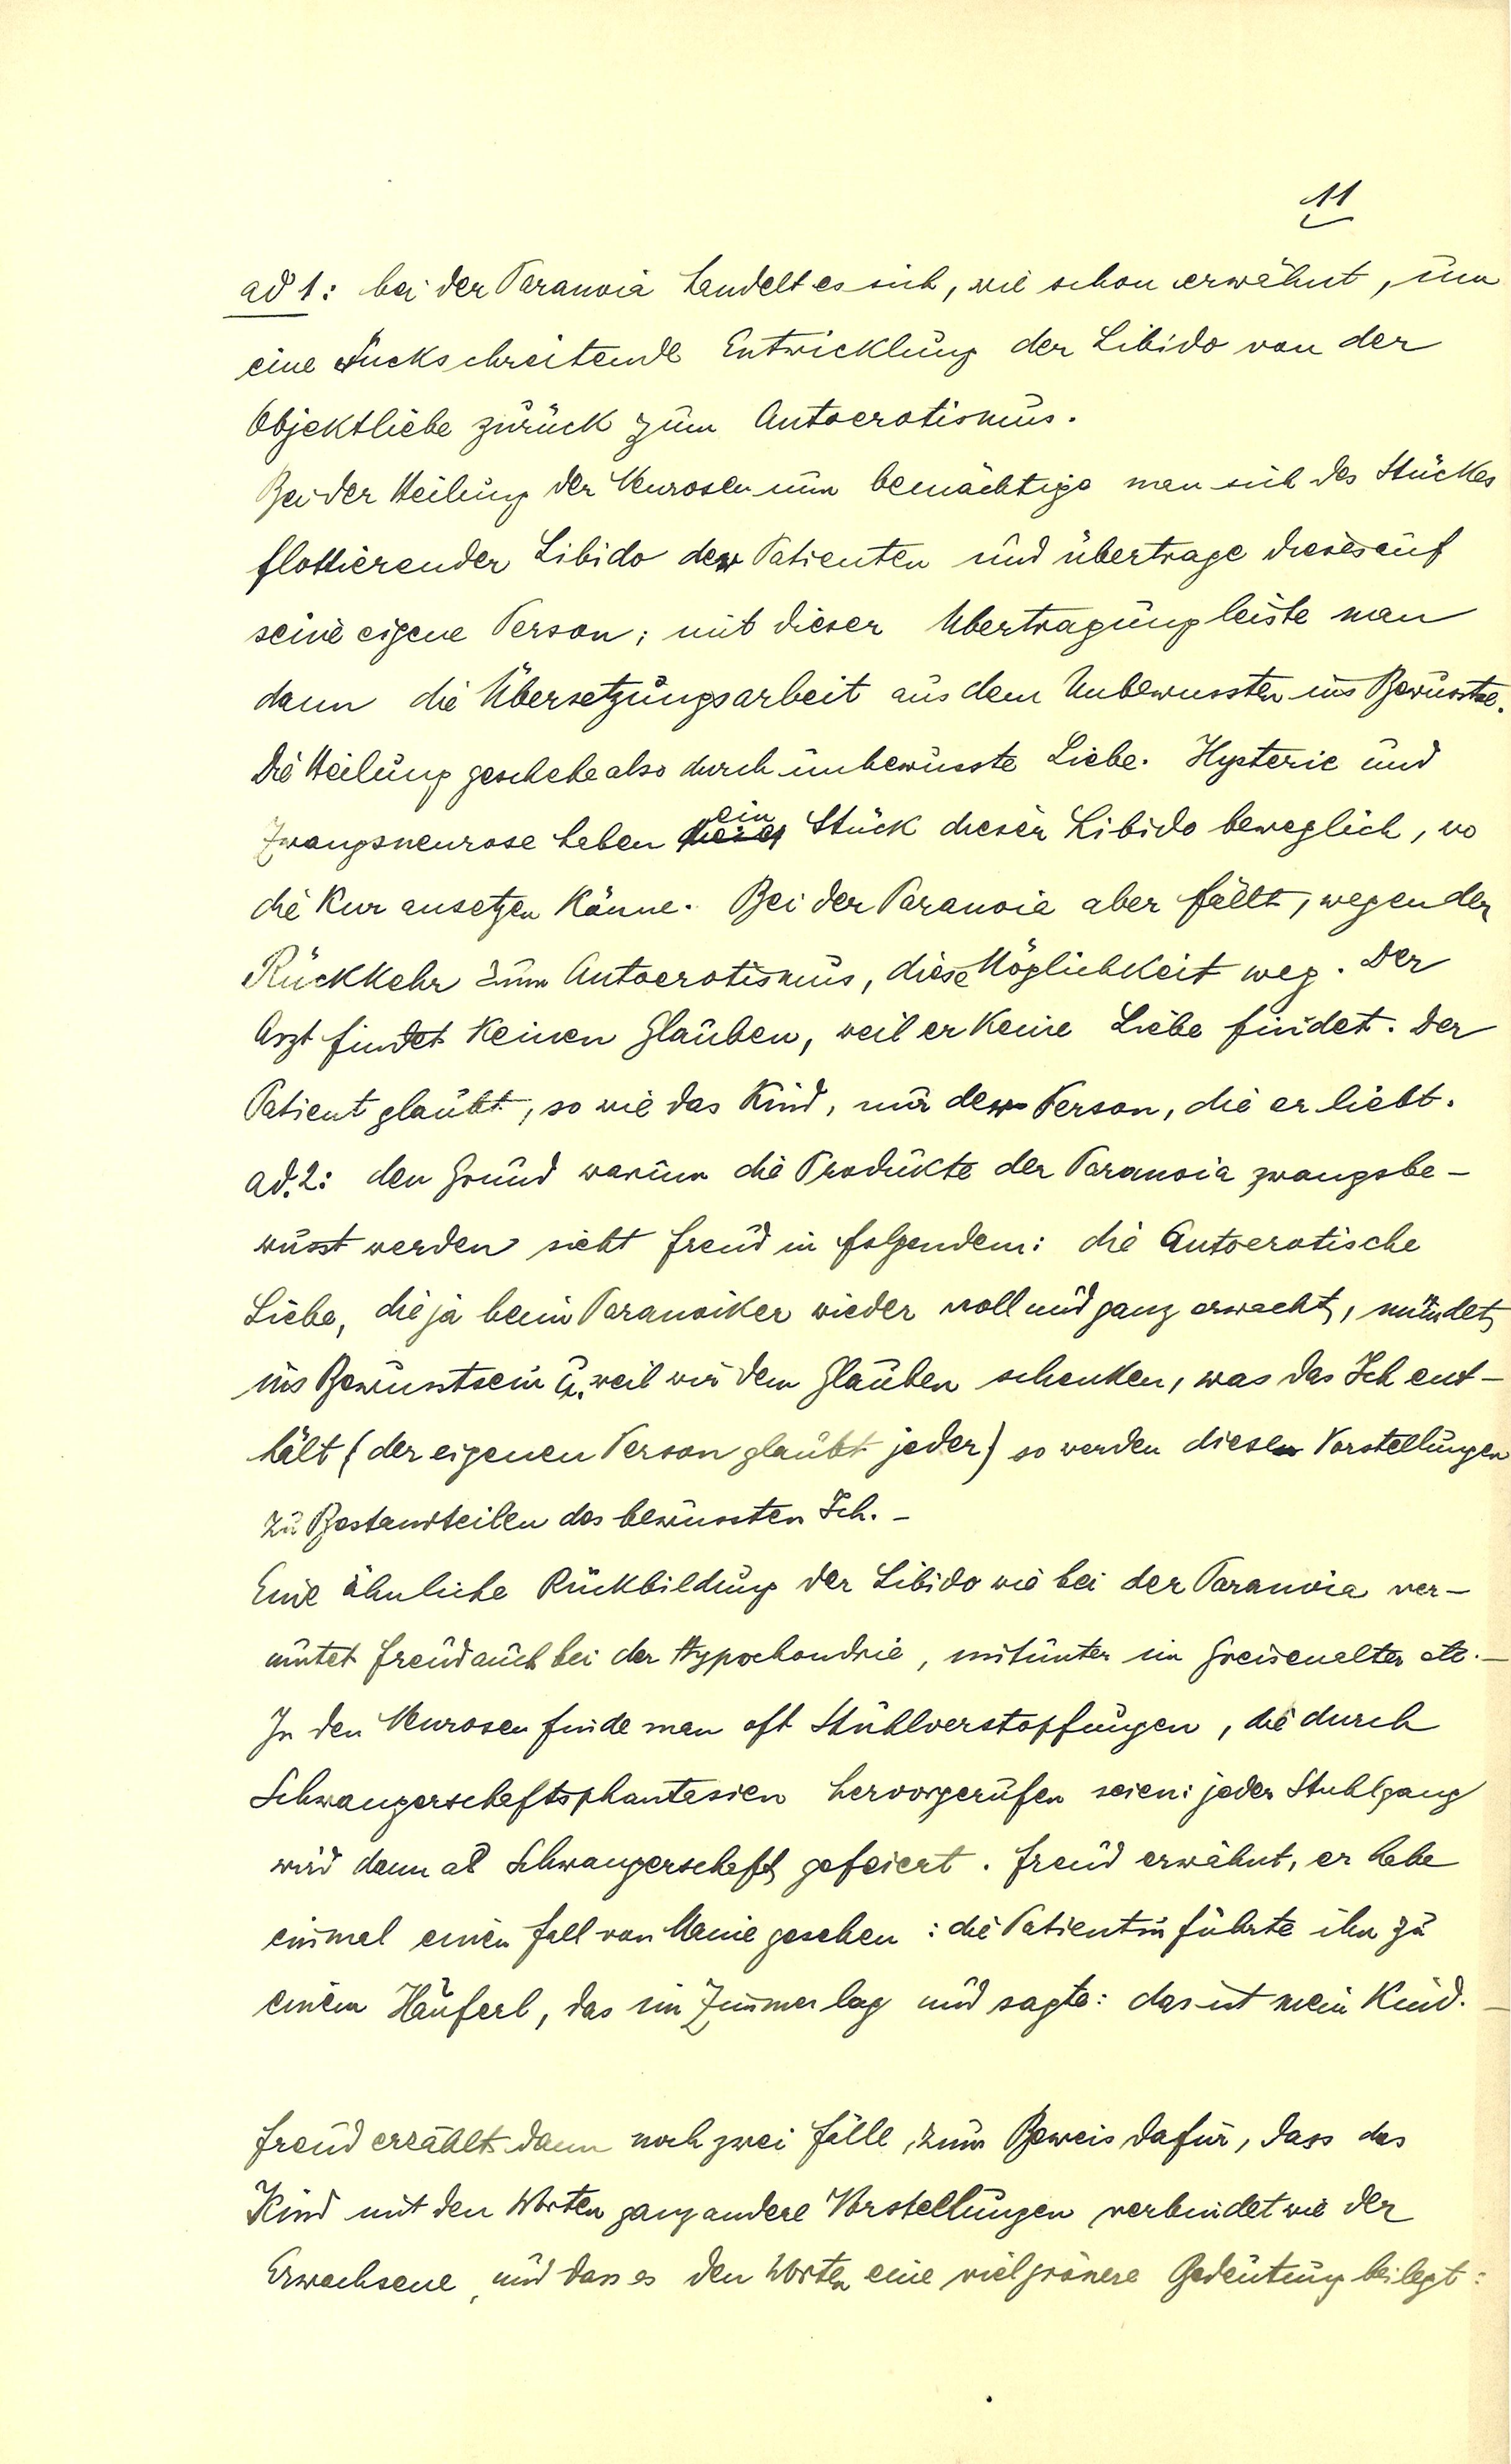 11
ad 1: bei der Paranoia handelt es sich, wie schon erwähnt, um
eine rückschreitende Entwicklung der Libido von der
Objektliebe zurück zum Autoerotismus.
Bei der Heilung der Neurosen nun bemächtige man sich des Stückes
flottierender Libido der Patienten und übertrage dieses auf
seine eigene Person; mit dieser Übertragung leiste man
dann die Übersetzungsarbeit aus dem Unbewussten ins Bewusste.
Die Heilung geschehe also durch unbewusste Liebe. Hysterie und
Zwangsneurose haben ein Stück dieser Libido beweglich, wo
die Kur ansetzen könne. Bei der Paranoia aber fällt, wegen der
Rückkehr zum Autoerotismus, diese Möglichkeit weg. Der
Arzt findet keinen Glauben, weil er keine Liebe findet. Der
Patient glaubt, so wie das Kind, nur der Person, die er liebt.
ad. 2: den Grund warum die Produkte der Paranoia zwangsbe-
wusst werden sieht Freud in folgendem: die Autoerotische
Liebe, die ja beim Paranoiker wieder voll und ganz erwacht, mündet
ins Bewusstsein u. weil wir dem Glauben schenken, was das Ich ent-
hält (der eigenen Person glaubt jeder) so werden diese Vorstellungen
zu Bestandteilen des bewussten Ich. -
Eine ähnliche Rückbildung der Libido wie bei der Paranoia ver-
mutet Freud auch bei der Hypochondrie, mitunter im Greisenalter etc. -
In den Neurosen finde man oft Stuhlverstopfungen, die durch
Schwangerschaftsphantasien hervorgerufen seien: jeder Stuhlgang
wird dann als Schwangerschaft gefeiert. Freud erwähnt, er habe
einmal einen Fall von Manie gesehen: die Patientin führte ihn zu
einem Häuferl, das im Zimmer lag und sagte: das ist mein Kind. -
Freud erzählt dann noch zwei Fälle, zum Beweis dafür, dass das
Kind mit den Worten ganz andere Vorstellungen verbindet wie der
Erwachsene, und dass es den Worten eine viel grössere Bedeutung beilegt: